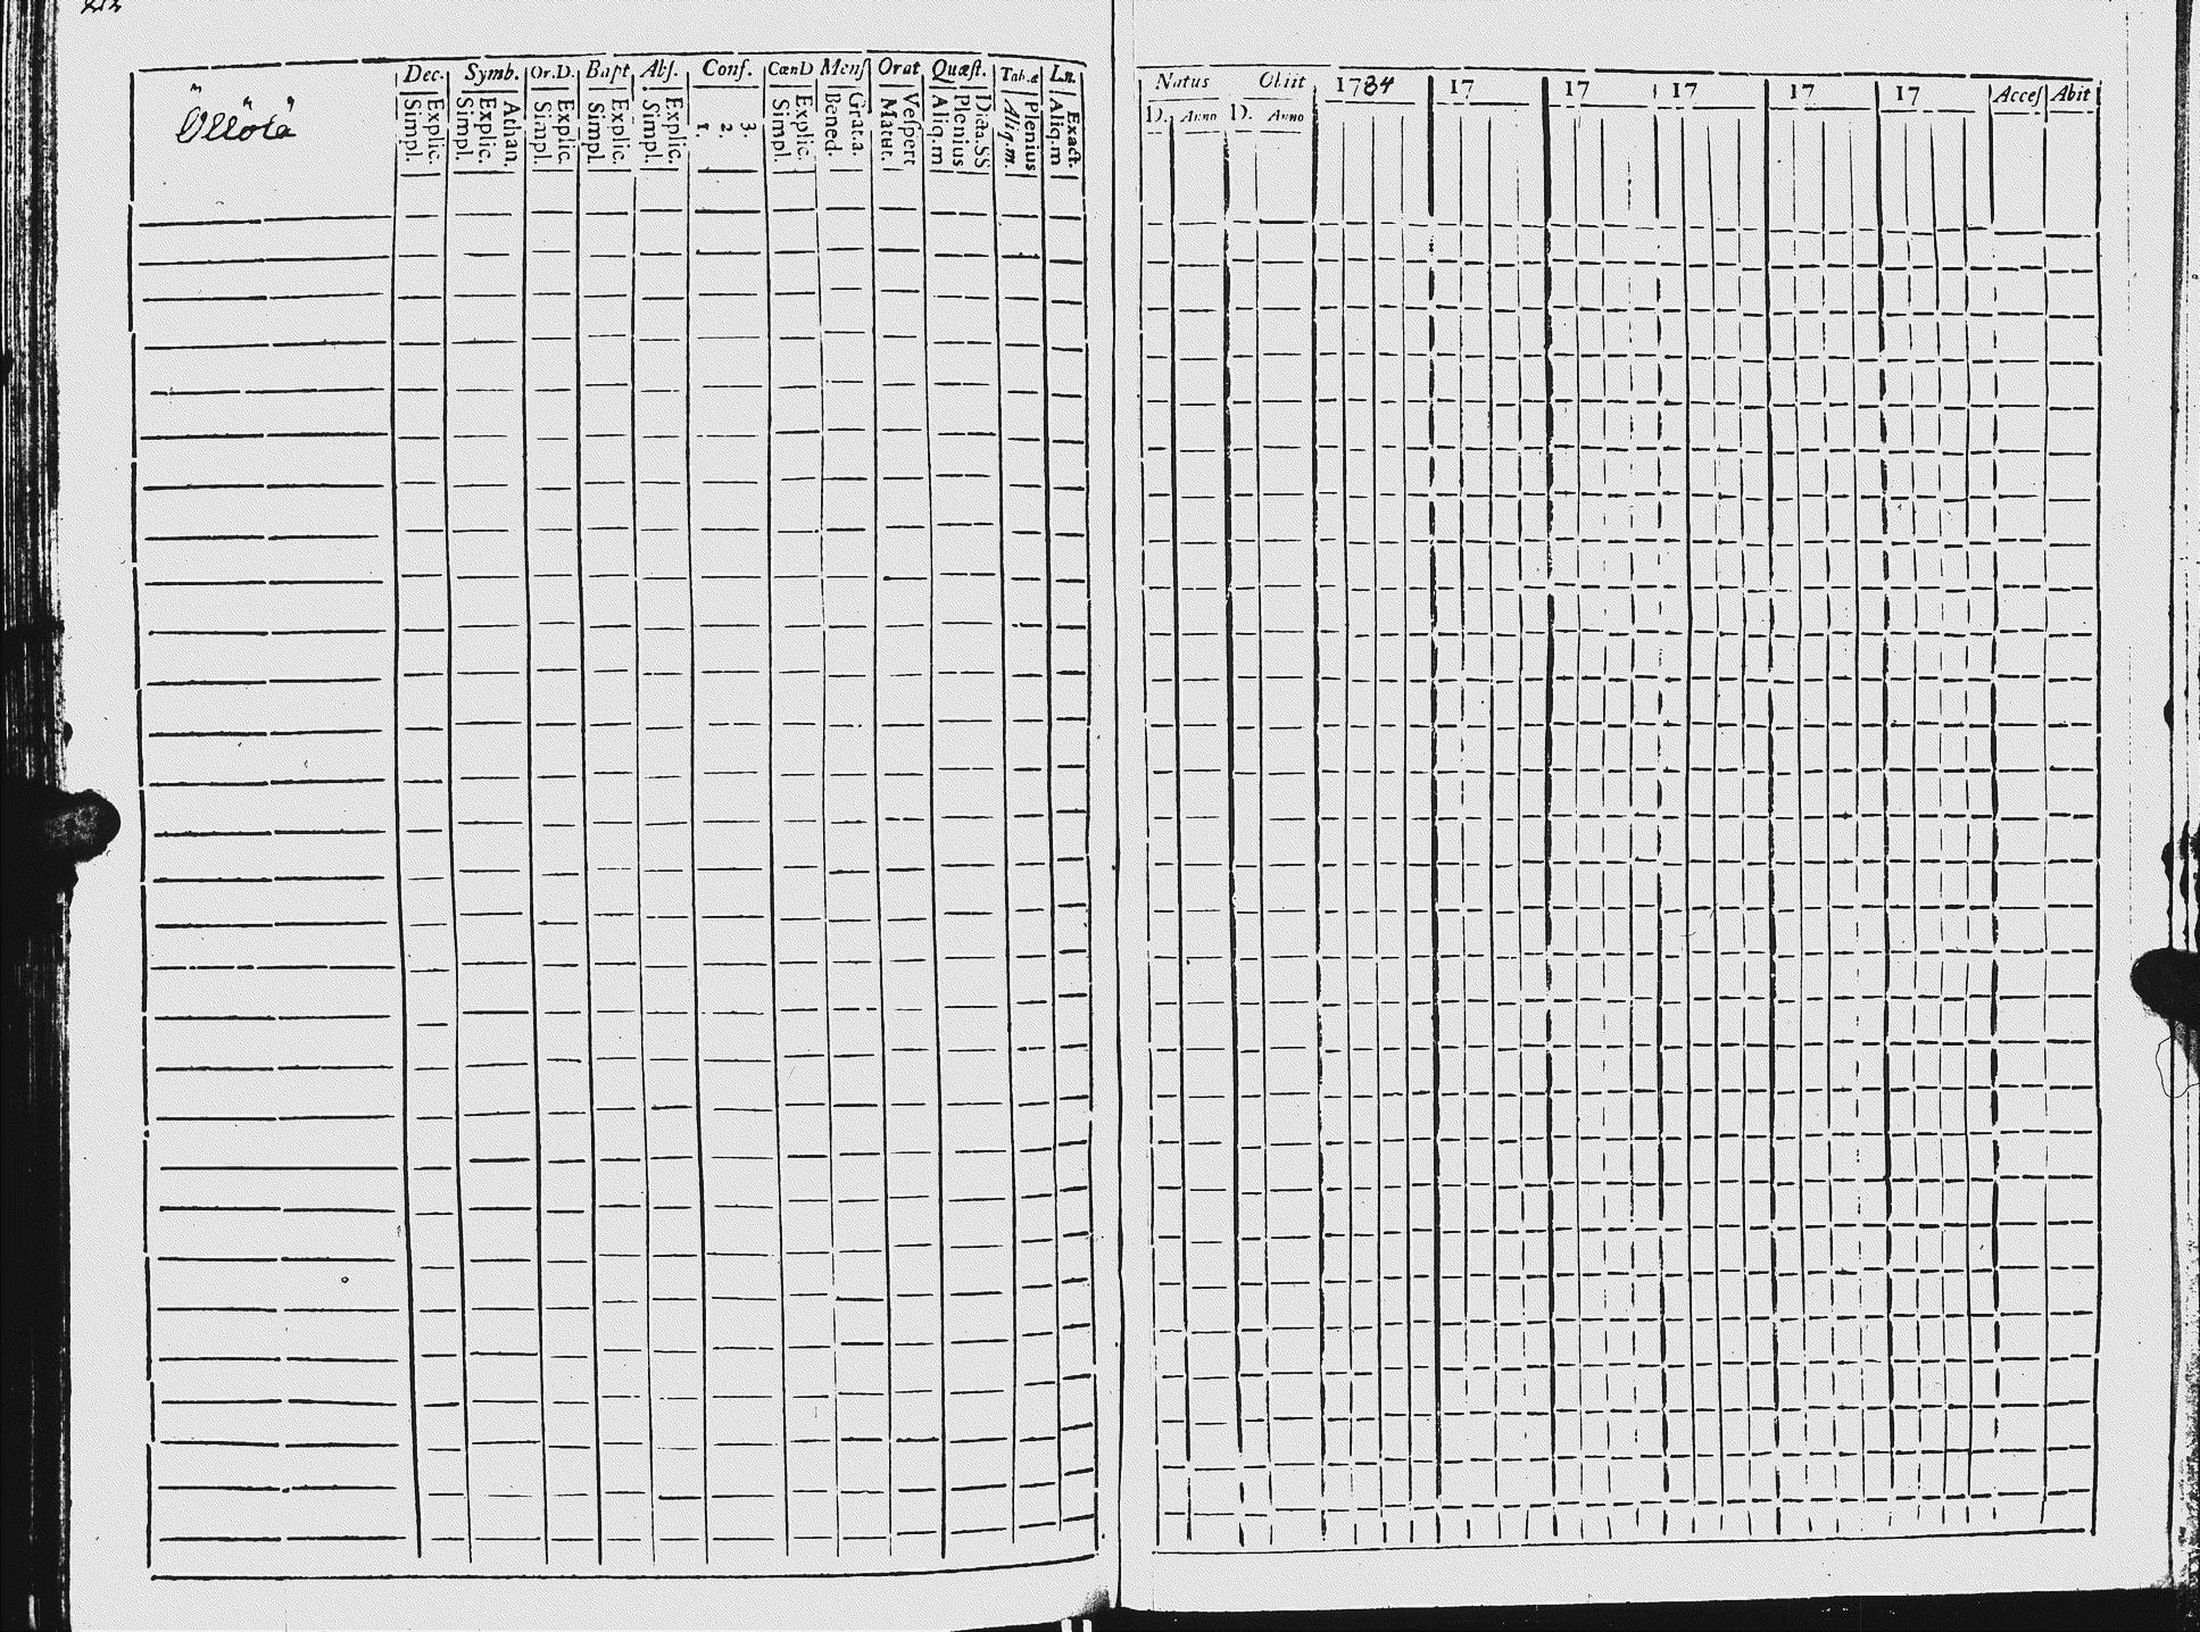 212
Öllölä
Dec. Symb. Or.D. Bapt Abs. Conf. CœnD Mens Orat Quæst. Tab.æ Ln.
Simpl. Explic. Simpl. Explic. Athan. Simpl. Explic. Simpl. Explic. Simpl. Explic. 1. 2. 3. Simpl. Explic. Bened. Grat.a. Matut. Vespert Aliq.m Plenius Dicta.SS Aliq.m. Plenius Aliq.m Exact.
Natus Obiit 1784 17 17 17 17 17 Acces Abit
D. Anno D. Anno